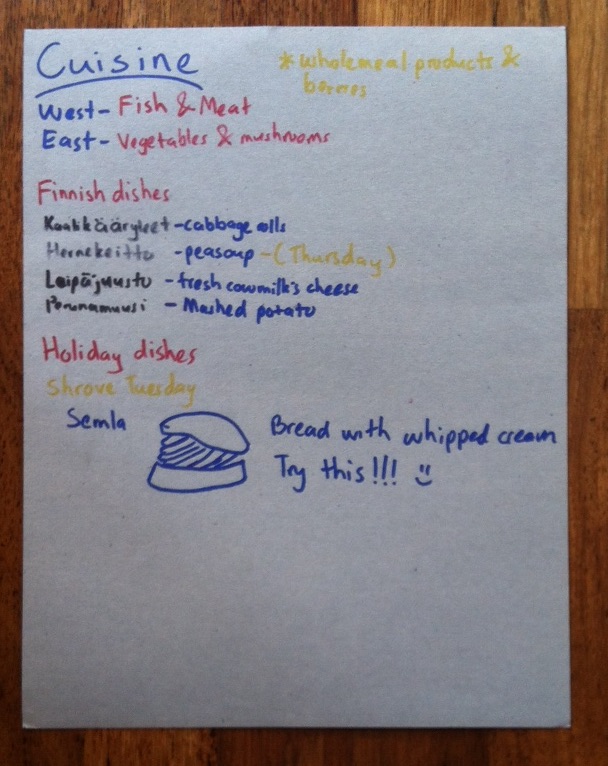 Cuisine
* wholemeal products &
berries
West - Fish & Meat
East - Vegetables & mushrooms
Finnish dishes
Kaalikääryleet - cabbage rolls
Hernekeitto - peasoup - (Thursday)
Leipäjuusto - fresh cowmilk's cheese
Perunamuusi - Mashed potato
Holiday dishes
Shrove Tuesday
Semla
Bread with whipped cream
Try this!!! :)